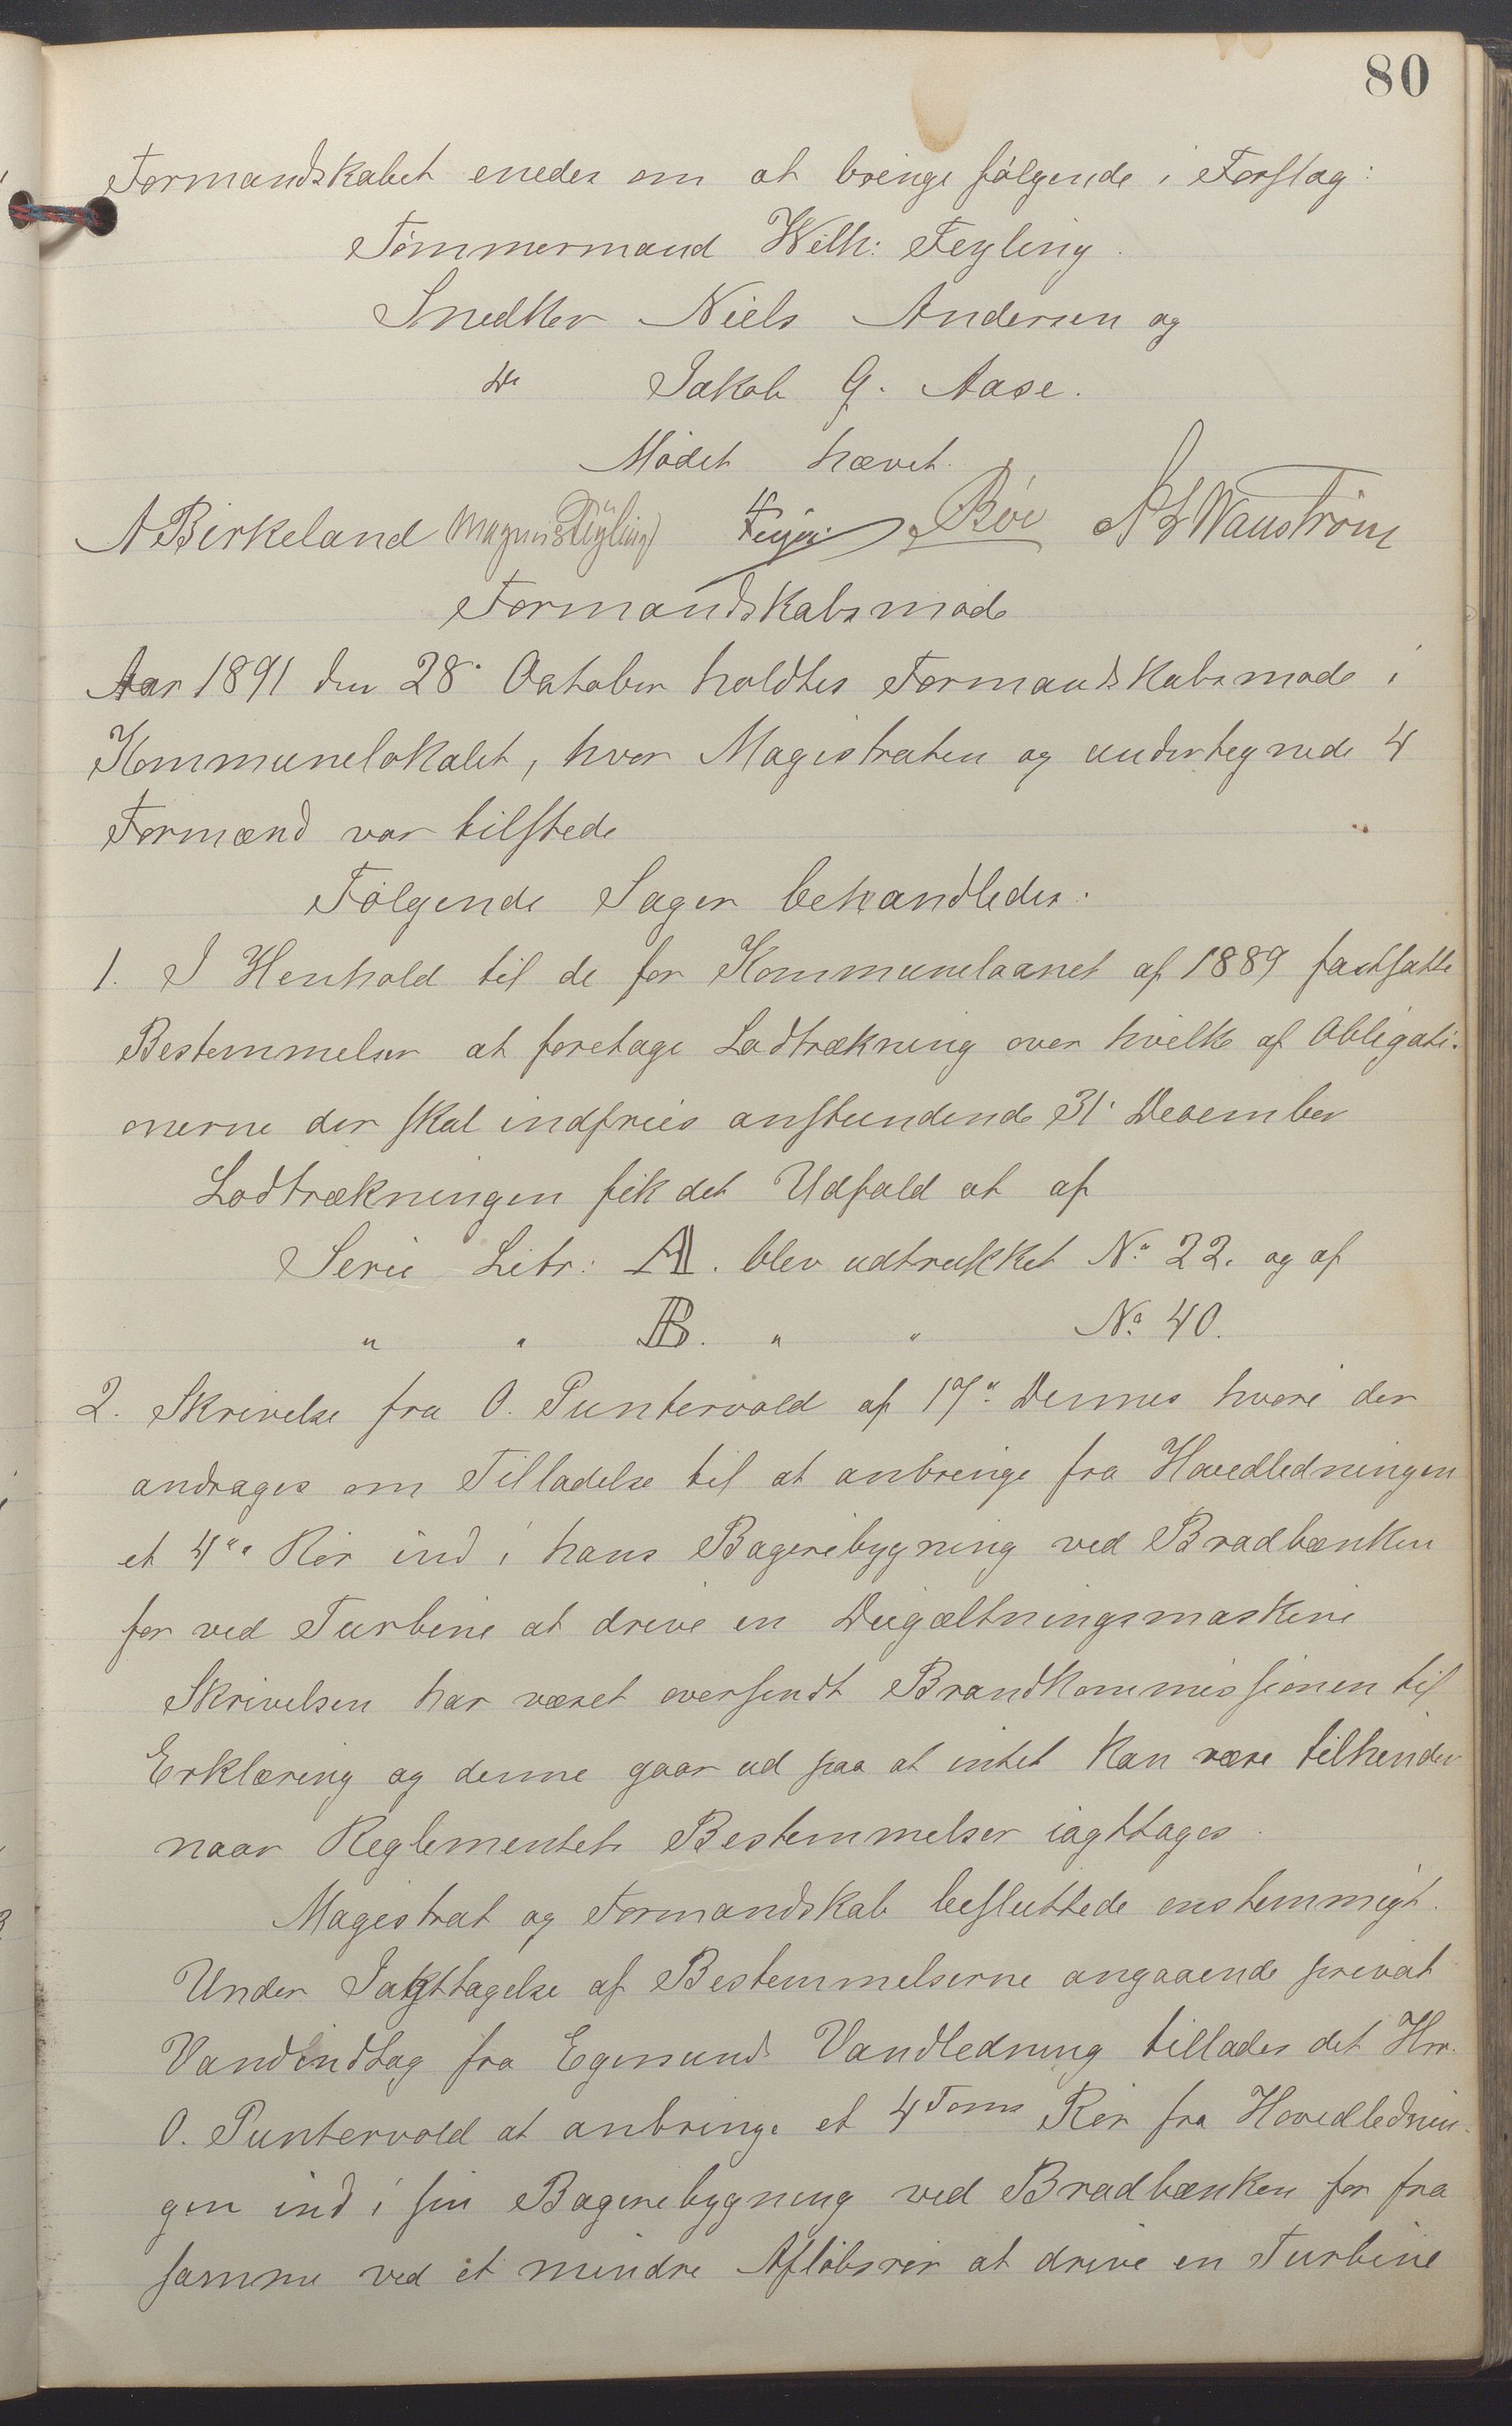 80
Formandskabet enedes om at bringe følgende i Forslag:
Tømmermand Wilh: Feyling.
Snedker Niels Andersen og
Do Jakob G. Aase.
Mødet hævet.
A Birkeland Magnus Feyling Feyer Bøe
Formandskabsmøde
Aar 1891 den 28. October holdtes Formandskabsmøde i
Kommunelokalet, hvor Magistraten og undertegnede 4
Formænd var tilstede
Følgende Sager behandledes:
1. I Henhold til de for Kommunelaanet af 1889 fastsatte
Bestemmelser at foretage Lodtrækning over hvilke af Obligati-
onerne der skal indfries anstundende 31. December
Lodtrækningen fik det Udfald at af
Serie Litr: A. blev udtrukket No 22. og af
" " B. " " No 40.
2. Skrivelse fra O. Puntervold af 17de Dennes hvori der
andrages om Tilladelse til at anbringe fra Hovedledningen
et 4" Rør ind i hans Bageribygning ved Bradbænken
for ved Turbine at drive en Deigæltningsmaskine
Skrivelsen har været oversendt Brandkommissionen til
Erklæring og denne gaar ud paa at intet kan være tilhinder
naar Reglementets Bestemmelser iagttages.
Magistrat og Formandskab besluttede enstemmigt.
Under Iagttagelse af Bestemmelserne angaaende privat
Vandindtag fra Egersunds Vandledning tillades det Hrr.
O. Puntervold at anbringe et 4 Toms Rør fra Hovedlednin-
gen ind i sin Bageribygning ved Bradbænken for fra
samme ved et mindre Afløbsrør at drive en Turbine